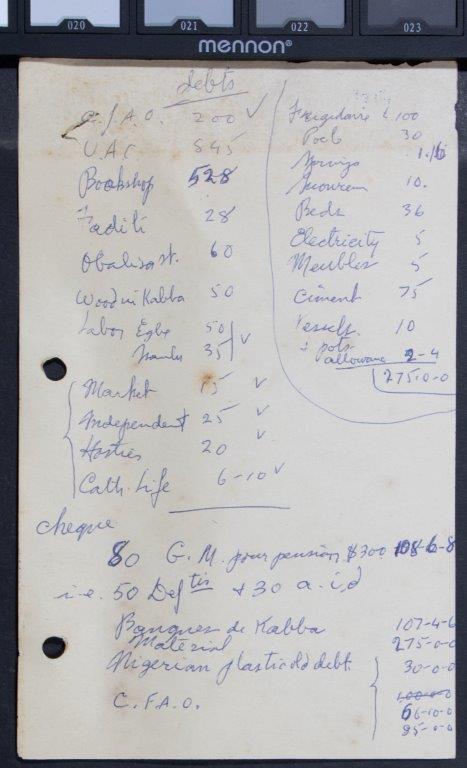 020 021 022 023
mennon®
debts
C.F.A.O. 200 ✓
UAC 545
Bookshop 528
Faditi 28
Obalisa st. 60
Wood in Kabba 50
Labor Egbe 50 ✓
35
Market 15 ✓
Independent 25 ✓
Hosties 20 ✓
Cath. Life 6-10 ✓
Frigidaire £ 100
30
1.16
10.
Beds 36
Electricity 5
Meubles 5
Ciment 75
Vessels 10
+ pots
allowance 2-4
275-0-0
cheque
80 G.M. pour pension $300 108-6-8
i-e. 50 + 30 a-i,d
Banques de Kabba 107-4-6
Material 275-0-0
Nigerian plastic old debt 30-0-0
100-0-0
C.F.A.O. 66-10-0
95-0-0